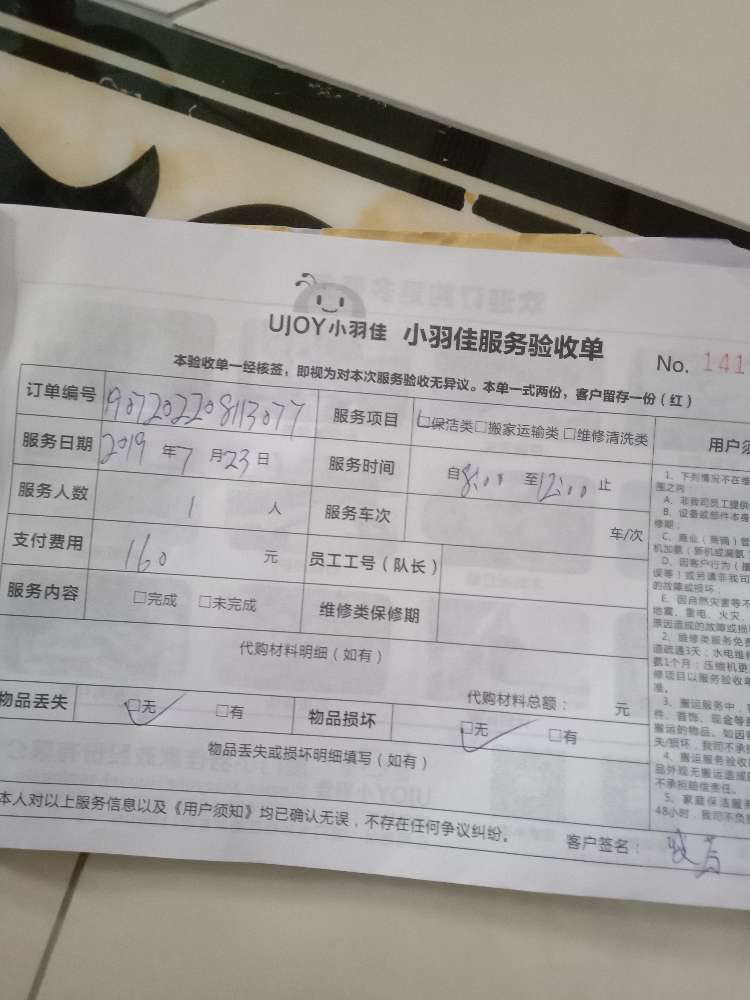 UJOY小羽佳 小羽佳服务验收单
No. 141
本验收单一经核签，即视为对本次服务验收无异议。本单一式两份，客户留存一份（红）
订单编号 1907202208113077 服务项目 □保洁类□搬家运输类 □维修清洗类
服务日期 2019 年 7 月 23 日 服务时间 自 8:00 至 12:00 止
服务人数 1 人 服务车次 车/次
支付费用 160 元 员工工号（队长）
服务内容 □完成 □未完成 维修类保修期
代购材料明细（如有）
代购材料总额： 元
物品丢失 □无 □有 物品损坏 □无 □有
物品丢失或损坏明细填写（如有）
本人对以上服务信息以及《用户须知》均已确认无误，不存在任何争议纠纷。 客户签名：
用户须
1、下列情况不在维
围之内：
A、非我司员工提供
B、设备或部件本身
修期；
C、商业（商铺）管
机加氨（新机或漏氨
D、因客户行为（操
误等）或另请非我司
的故障或损坏；
E、因自然灾害等不
地震、雷电、火灾、
原因造成的故障或损
2、维修类服务免费
道疏通3天；水电维
氨1个月；压缩机更
修项目以服务验收单
准。
3、搬运服务中，
件、首饰、现金等
搬运的物品。如因
失/损坏，我司不承
4、搬运服务验收
品外观无搬运造成
不承担赔偿责任。
5、家庭保洁服
48小时，我司不负